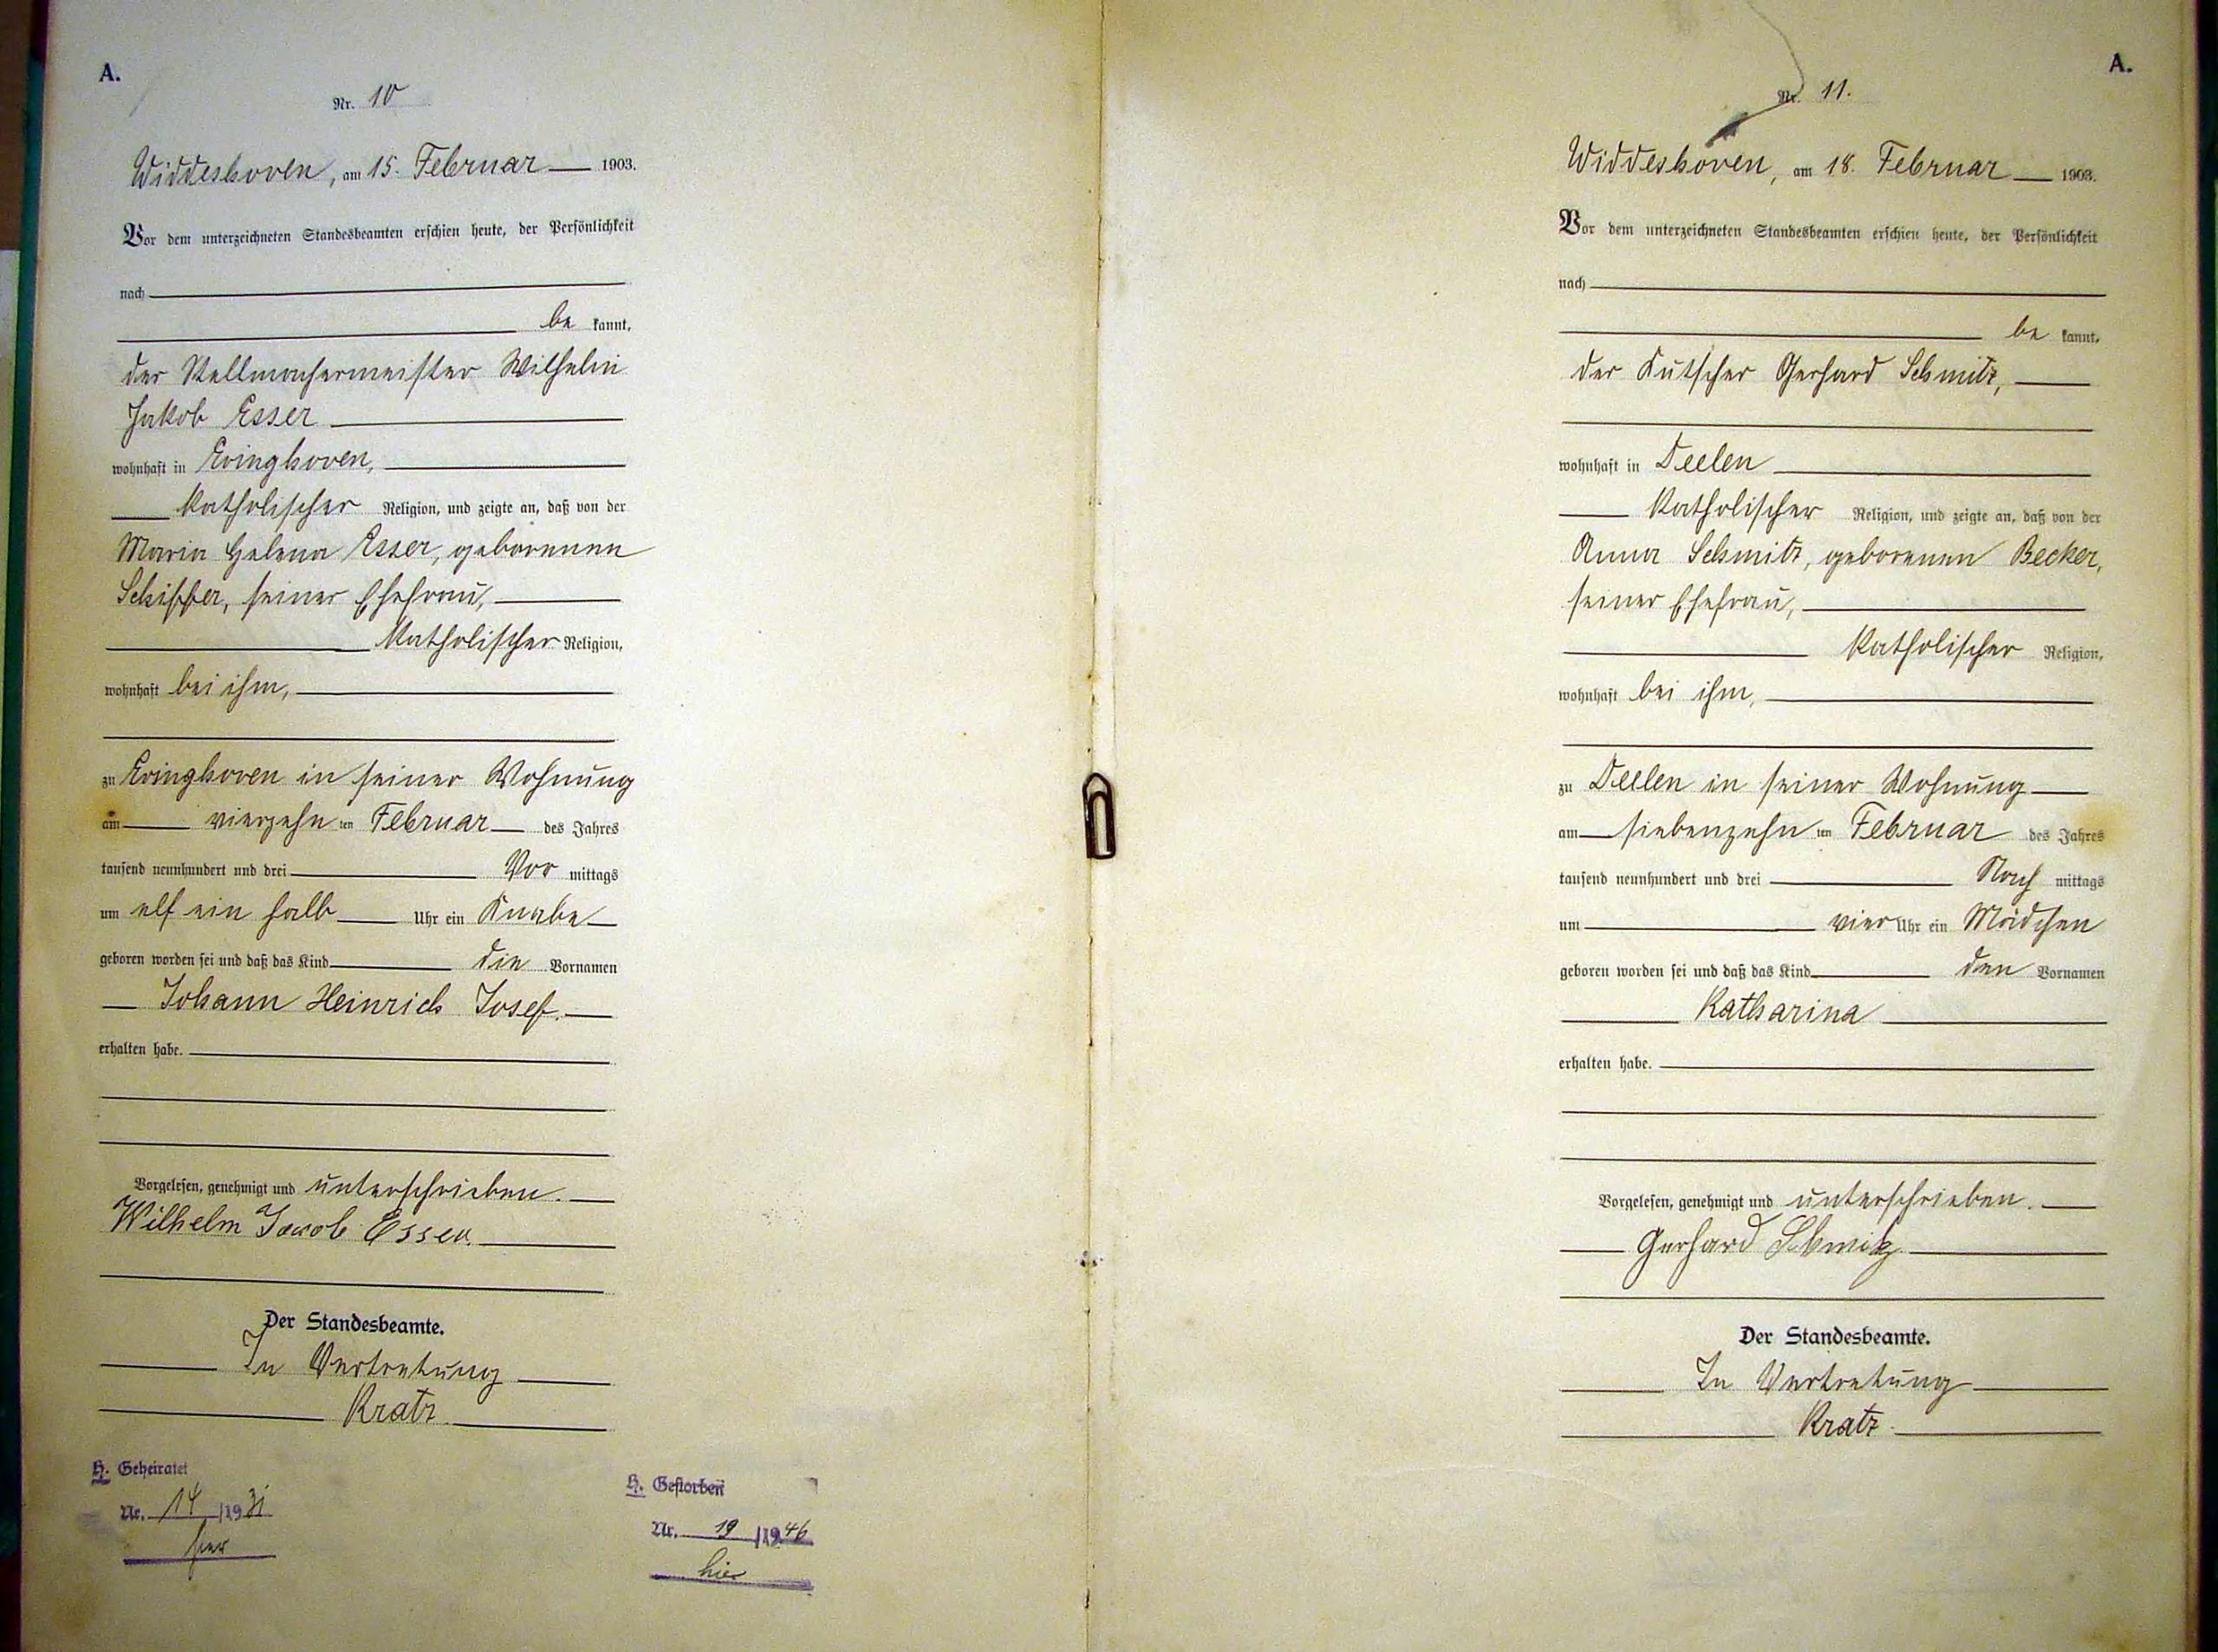 A.
Nr. 10
Widdeshoven, am 15. Februar 1903.
Vor dem unterzeichneten Standesbeamten erschien heute, der Persönlichkeit
nach
be kannt,
der Stellmachermeister Wilhelm
Jakob Esser
wohnhaft in Evinghoven,
katholischer Religion, und zeigte an, daß von der
Maria Helena Esser, geborenen
Schiffer, seiner Ehefrau,
katholischer Religion,
wohnhaft bei ihm,
zu Evinghoven in seiner Wohnung
am vierzehn ten Februar des Jahres
tausend neunhundert und drei Vor mittags
um elf ein halb Uhr ein Knabe
geboren worden sei und daß das Kind die Vornamen
Johann Heinrich Josef.
erhalten habe.
Vorgelesen, genehmigt und unterschrieben.
Wilhelm Jacob Esser.
Der Standesbeamte.
In Vertretung
Kratz.
H. Geheiratet
Nr. 14 /1931
hier
H. Gestorben
Nr. 19 /1946
hier
A.
Nr. 11.
Widdeshoven, am 18. Februar 1903.
Vor dem unterzeichneten Standesbeamten erschien heute, der Persönlichkeit
nach
be kannt,
der Kutscher Gerhard Schmitz,
wohnhaft in Deelen
katholischer Religion, und zeigte an, daß von der
Anna Schmitz, geborenen Becker,
seiner Ehefrau,
katholischer Religion,
wohnhaft bei ihm,
zu Deelen in seiner Wohnung
am siebenzehn ten Februar des Jahres
tausend neunhundert und drei Nach mittags
um vier Uhr ein Mädchen
geboren worden sei und daß das Kind den Vornamen
Katharina
erhalten habe.
Vorgelesen, genehmigt und unterschrieben.
Gerhard Schmitz
Der Standesbeamte.
In Vertretung
Kratz.